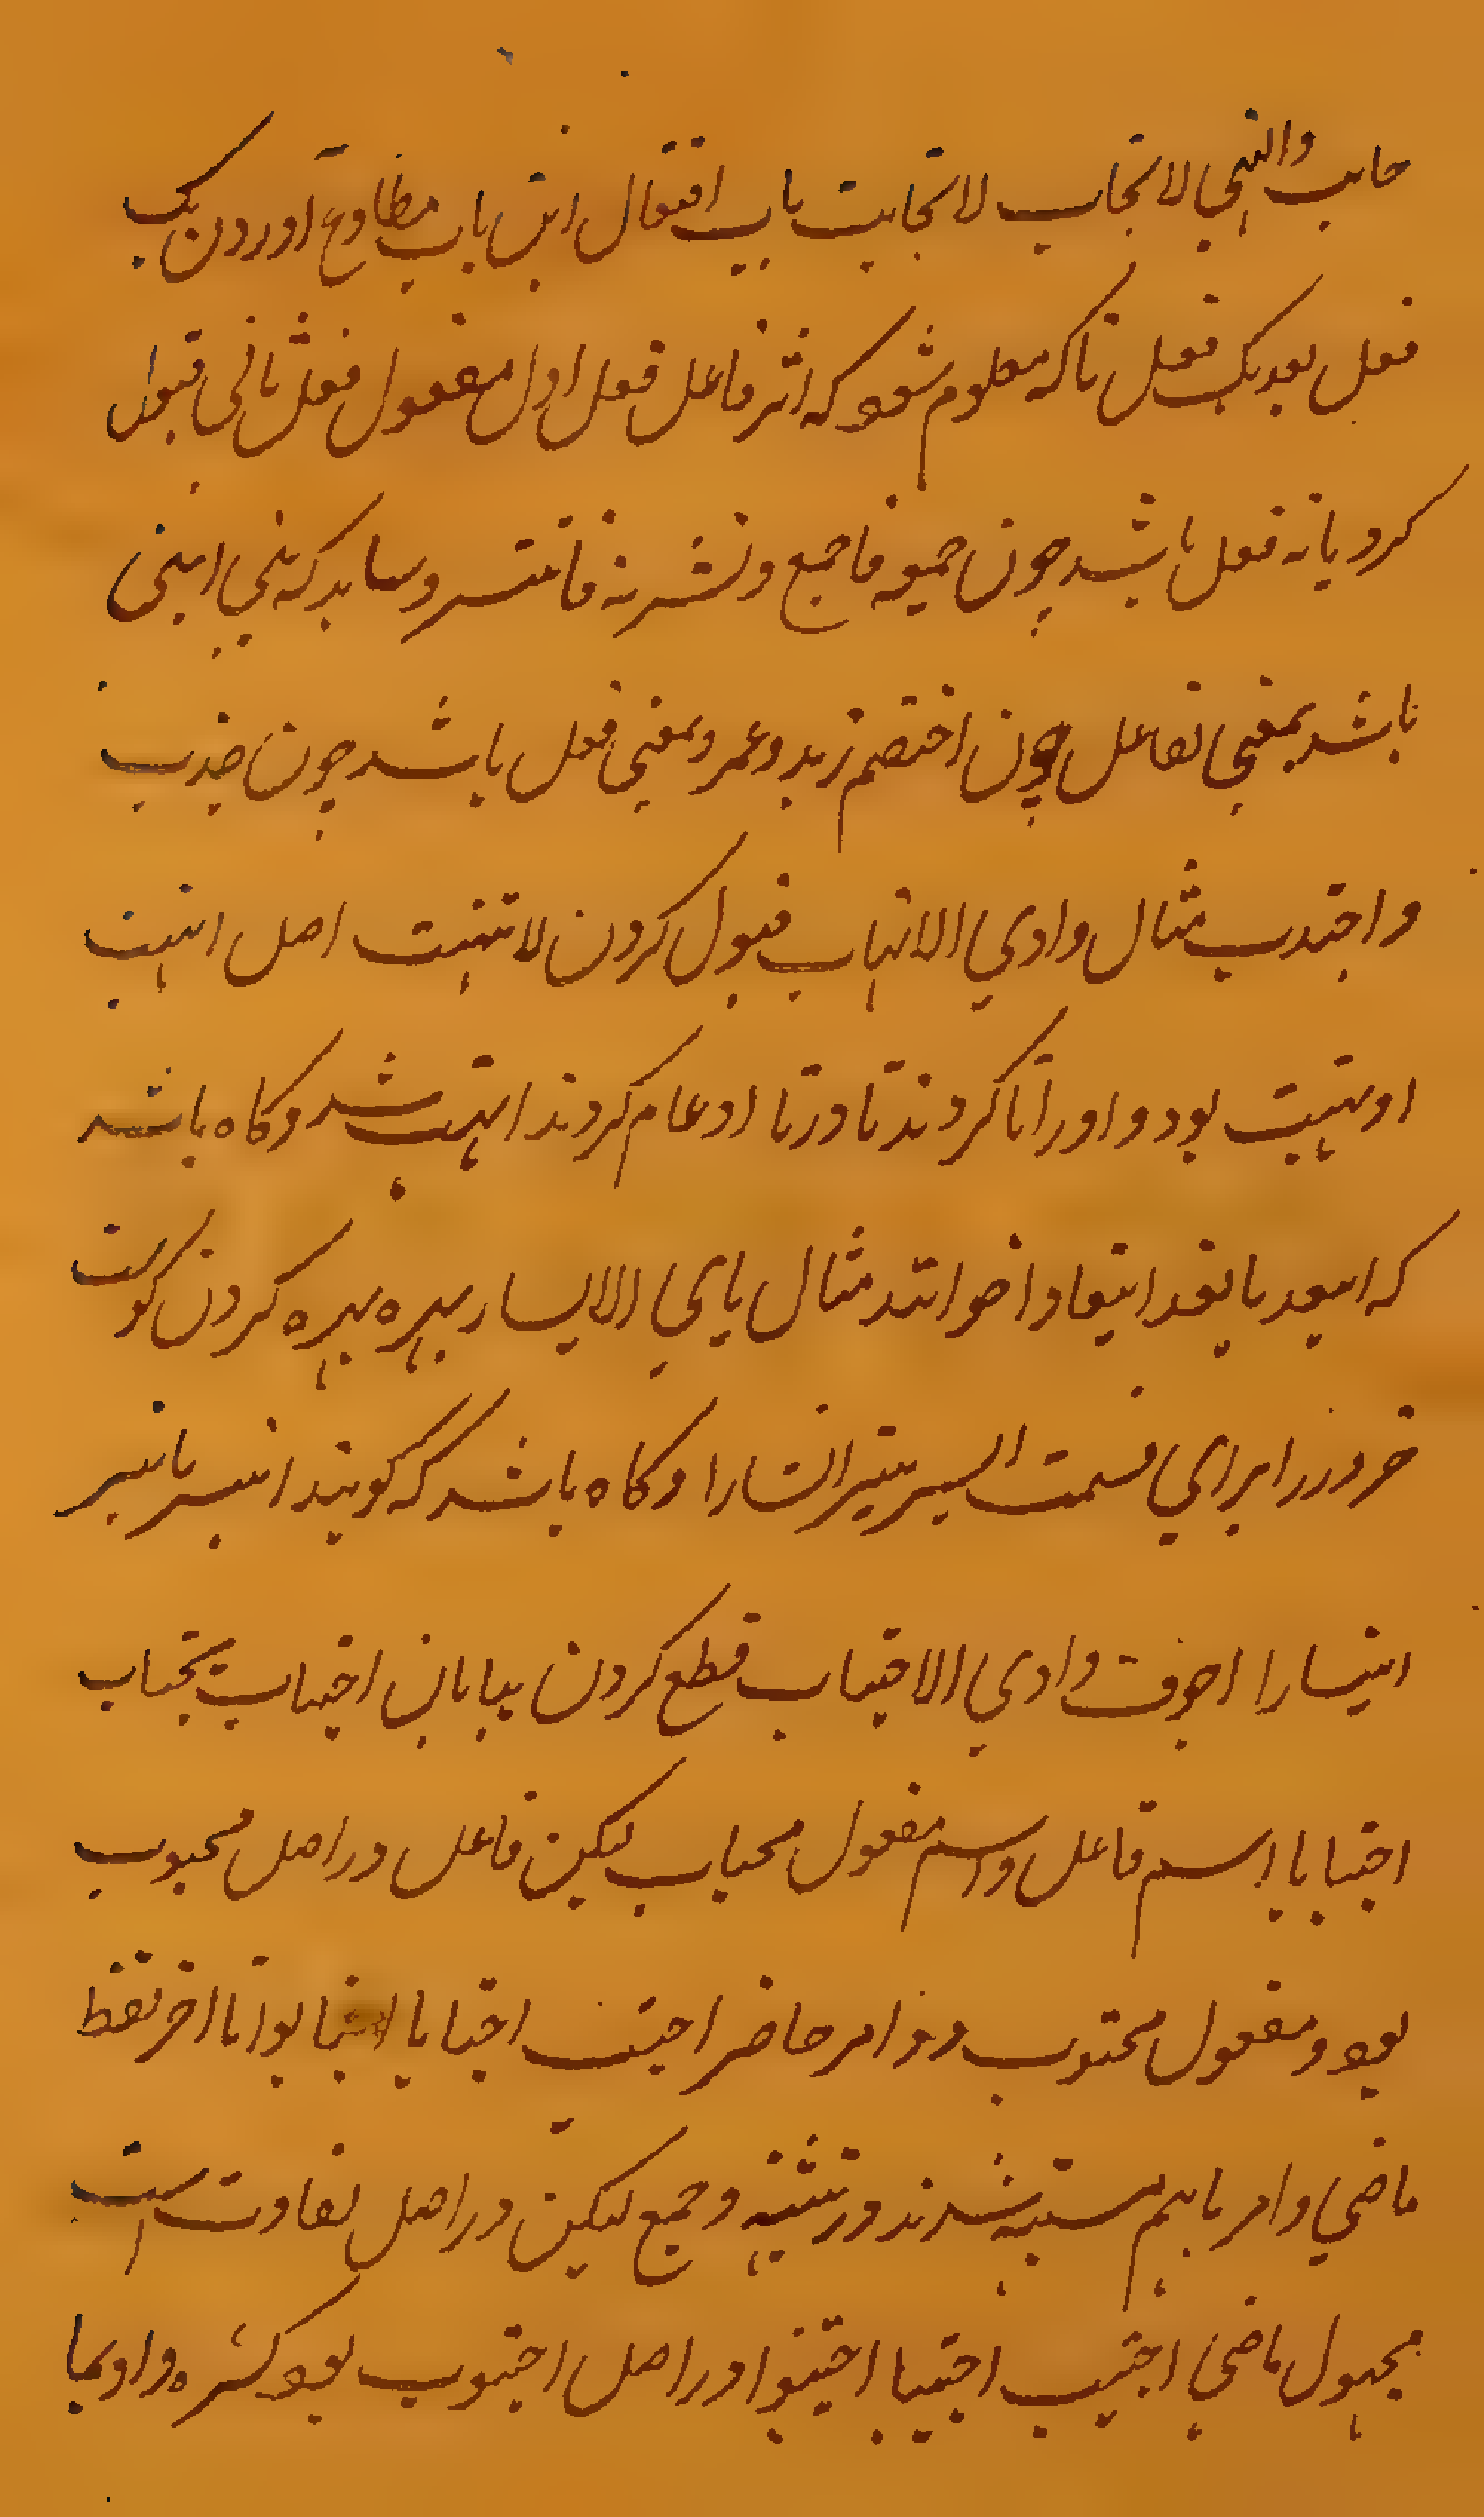 حابب والنهی لا تجاب لا تجابب باب افتعال این باب مطاوع آوردن یک
فعل بعد یک فعل تا که معلوم شود که اثر فاعل فعل اول مفعول فعل ثانی قبول
کرد یا نه فعل باشد چون جمعته فاجمع ونشرته فانتشر و شاید که بنی ابنی
باشد بمعنی تفاعل چون اختصم زید و عمرو بمعنی فعل باشد چون جذب
و اجتذب مثال وادی الاتهاب قبول کردن لا تتهب اصل اتهب
اوتهب بود و او را تا کردند تا در تا ادغام کردند اتهب شد و کاه باشد
که ایتعد یا یتعد ایتعادا خوانند مثال یایی الایسار بهره بهره کردن کوشت
خرورد را برای قسمت اتسر یتسر اتسارا و کاه باشد که کویند ایتسر یاتسر
ایتسارا اجوف وادی الاجتیاب قطع کردن بیابان اجتاب یجتاب
اجتیابا اسم فاعل واسم مفعول مجتاب لیکن فاعل در اصل مجتوب
بود و مفعول مجتوب و امر حاضر اجتب اجتابا اجتابوا تا آخر لفظ
ماضی و امر باهم مشتبه شدند در تثنیه و جمع لیکن در اصل تفاوت است
مجهول ماضی اجتیب اجتیبا اجتیبوا در اصل اجتوب بود کسره واو بما